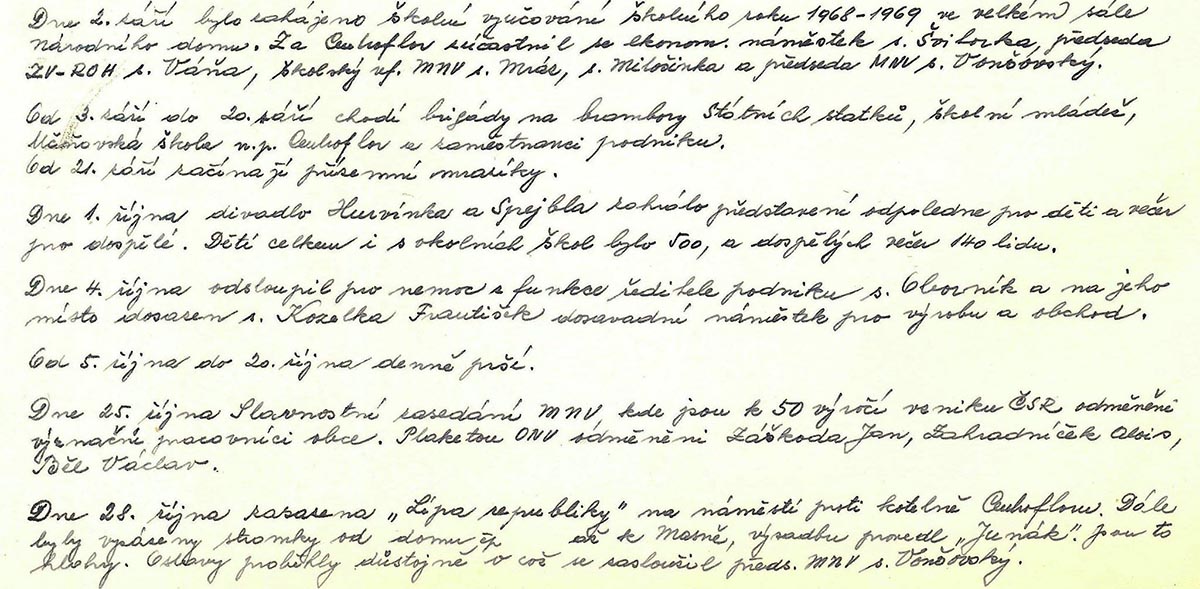 Dne 2. září bylo zahájeno školní vyučování školního roku 1968-1969 ve velkém sále
Národního domu. Za Centroflor zúčastnil se ekonom. náměstek s. Švilorka, předseda
ZV-ROH s. Váňa, školský ref. MNV s. Mráz, s. Milošinka a předseda MNV s. Vonšovský.
Od 3. září do 20. září chodí brigády na brambory Státních statků, školní mládež,
Učňovská škola n.p. Centroflor a zaměstnanci podniku.
Od 21. září začínají přízemní mrazíky.
Dne 1. října divadlo Hurvínka a Spejbla zahrálo představení odpoledne pro děti a večer
pro dospělé. Dětí celkem i s okolních škol bylo 500, a dospělých večer 140 lidu.
Dne 4. října odstoupil pro nemoc z funkce ředitele podniku s. Obornik a na jeho
místo dosazen s. Kozelka František dosavadní náměstek pro výrobu a obchod.
Od 5. října do 20. října denně prší.
Dne 25. října Slavnostní zasedání MNV, kde jsou k 50 výročí vzniku ČSR odměněni
význační pracovníci obce. Plaketou ONV odměněni Záškoda Jan, Zahradníček Alois,
Běl Václav.
Dne 28. října zasazena „Lípa republiky" na náměstí proti kotelně Centrofloru. Dále
byly vysázeny stromky od domu čp až k Masně, výsadbu provedl „Junák". Jsou to
hlohy. Oslavy proběhly důstojně o což se zasloužil předs. MNV s. Vonšovský.